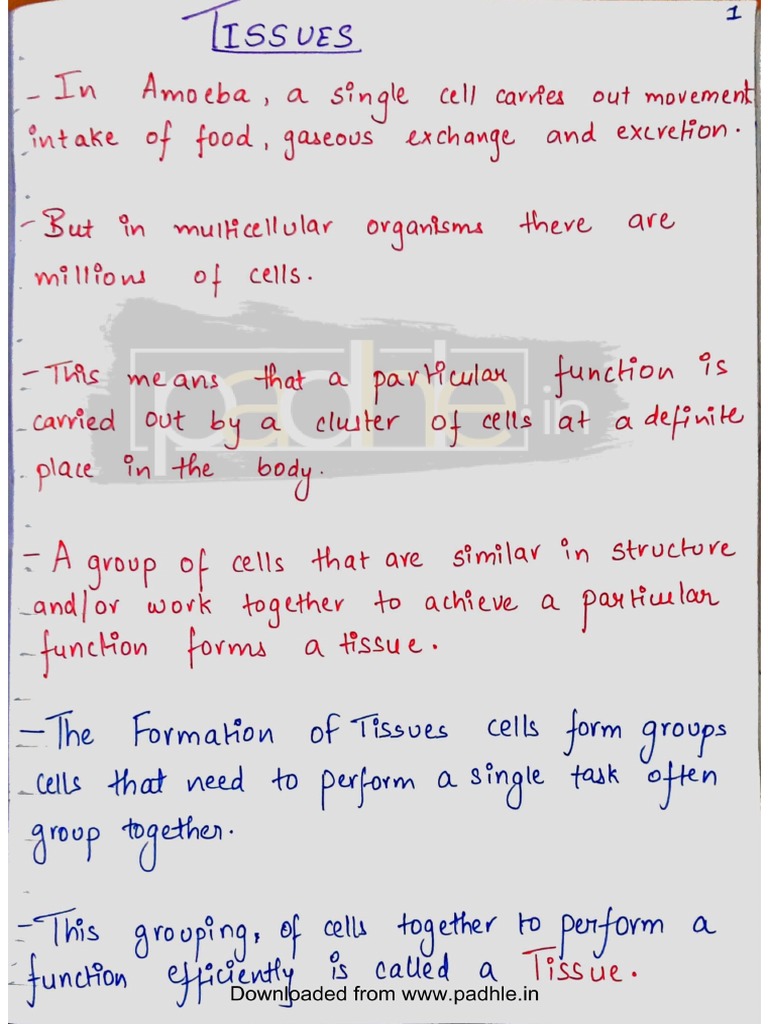 1
TISSUES
- In Amoeba, a single cell carries out movement
intake of food, gaseous exchange and excretion.
- But in multicellular organisms there are
millions of cells.
- This means that a particular function is
carried out by a cluster of cells at a definite
place in the body.
padhle.in
- A group of cells that are similar in structure
and/or work together to achieve a particular
function forms a tissue.
- The Formation of Tissues cells form groups
cells that need to perform a single task often
group together.
- This grouping, of cells together to perform a
function efficiently is called a Tissue.
Downloaded from www.padhle.in